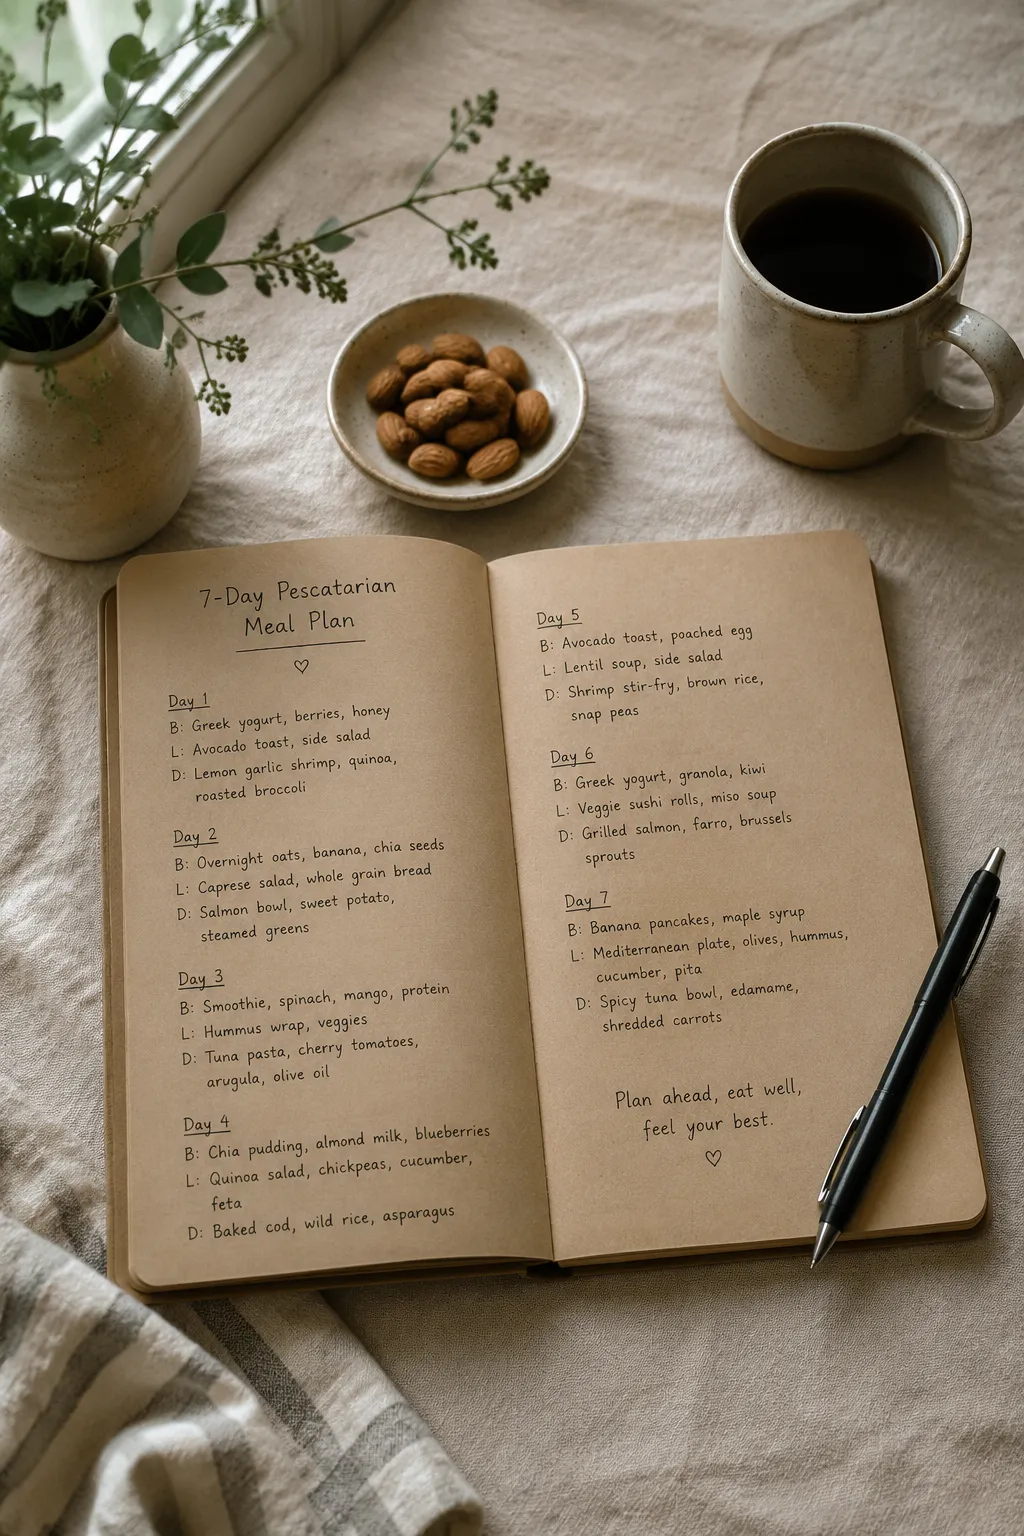 7-Day Pescatarian
Meal Plan
Day 1
B: Greek yogurt, berries, honey
L: Avocado toast, side salad
D: Lemon garlic shrimp, quinoa,
roasted broccoli
Day 2
B: Overnight oats, banana, chia seeds
L: Caprese salad, whole grain bread
D: Salmon bowl, sweet potato,
steamed greens
Day 3
B: Smoothie, spinach, mango, protein
L: Hummus wrap, veggies
D: Tuna pasta, cherry tomatoes,
arugula, olive oil
Day 4
B: Chia pudding, almond milk, blueberries
L: Quinoa salad, chickpeas, cucumber,
feta
D: Baked cod, wild rice, asparagus
Day 5
B: Avocado toast, poached egg
L: Lentil soup, side salad
D: Shrimp stir-fry, brown rice,
snap peas
Day 6
B: Greek yogurt, granola, kiwi
L: Veggie sushi rolls, miso soup
D: Grilled salmon, farro, brussels
sprouts
Day 7
B: Banana pancakes, maple syrup
L: Mediterranean plate, olives, hummus,
cucumber, pita
D: Spicy tuna bowl, edamame,
shredded carrots
Plan ahead, eat well,
feel your best.